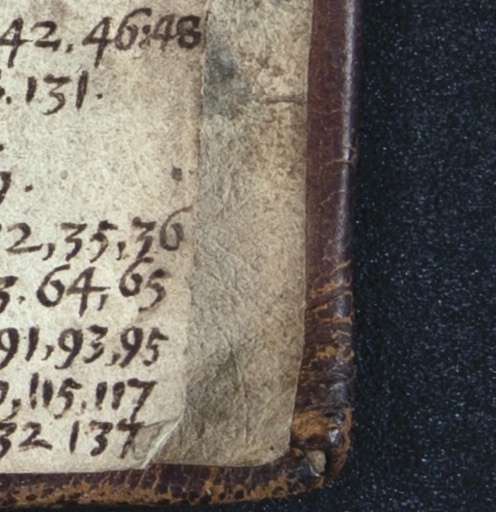 42, 46:48
. 131.
9.
2, 35, 36
3. 64, 65
91, 93, 95
, 115, 117
32 137